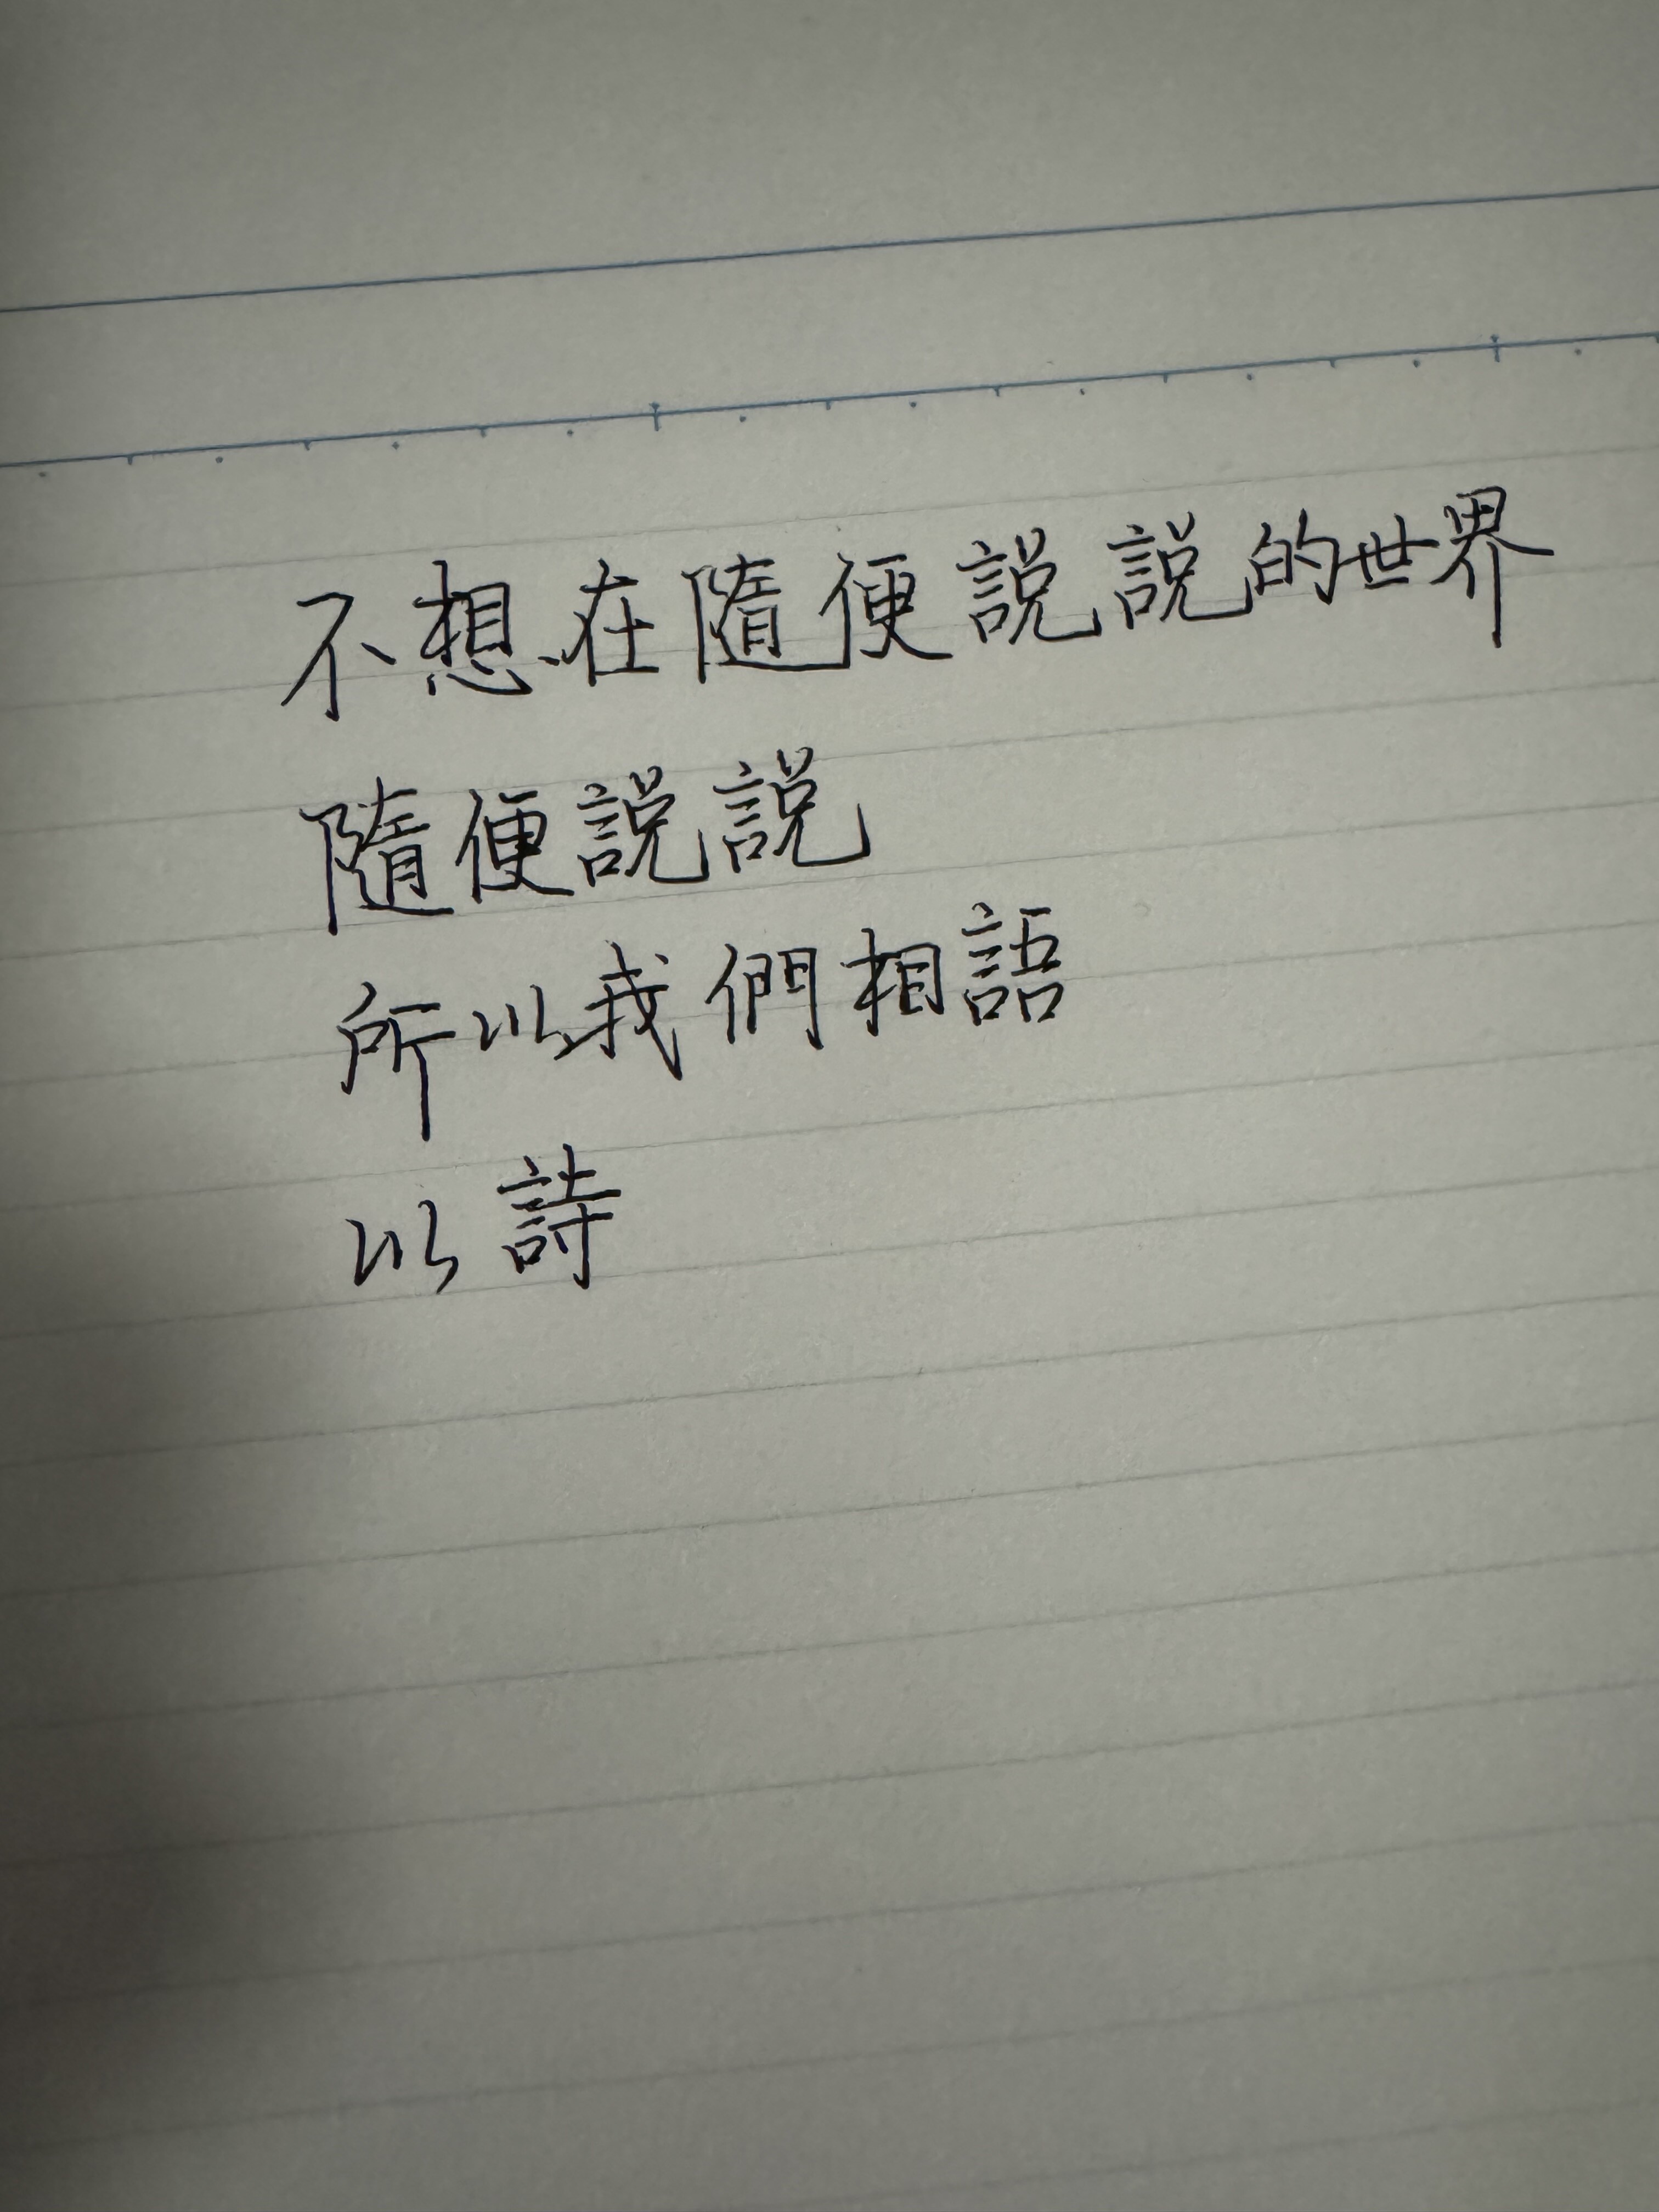 不想在隨便說說的世界
隨便說說
所以我們相語
以詩